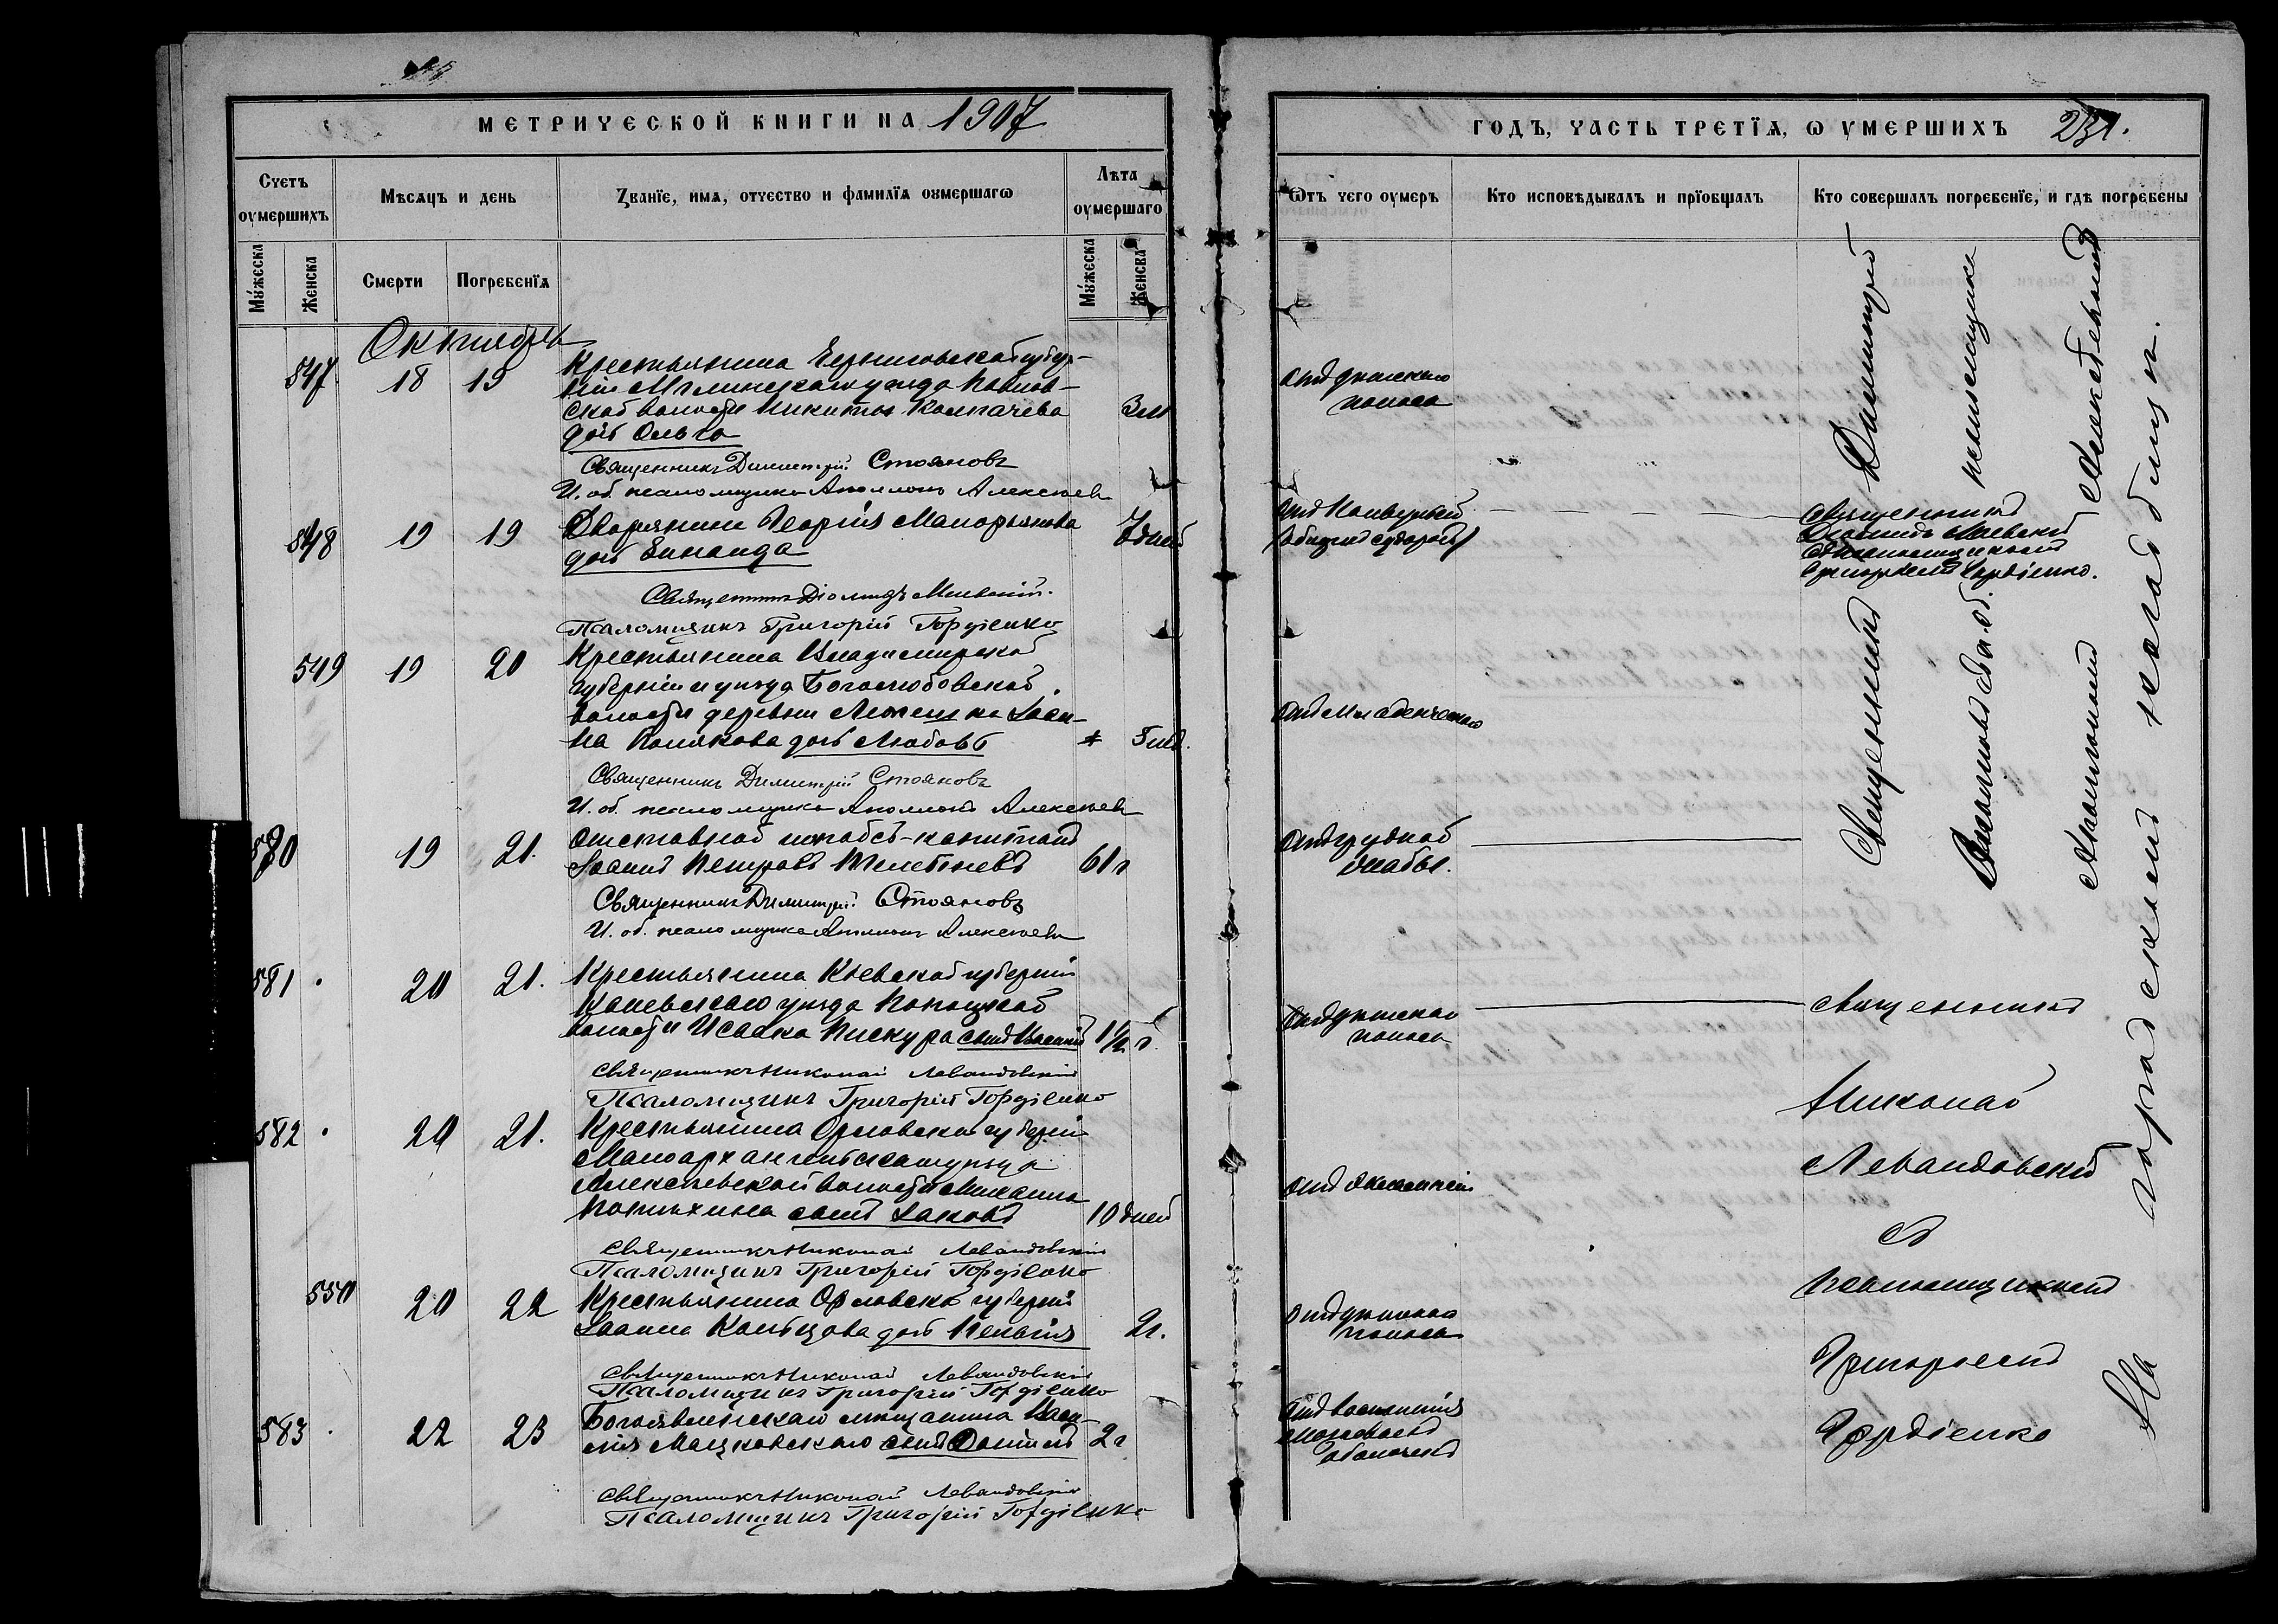 МЕТРИЧЕСКОЙ КНИГИ НА 1907
Счетъ оумершихъ
Мѣсяцъ и день
Званіе, имя, отчество и фамилія оумершагѡ
Лѣта оумершаго
Мужеска
Женска
Смерти
Погребенія
Мужеска
Женска
Октября
547 18 19 Крестьянина Черниговской губер-
ніи Мглинскаго уѣзда Павлов-
ской волости Никиты Колпачева 3 м
дочь Ольга
Священникъ Димитрій Стояновъ
И. об. псаломщика Аполлонъ Алексѣевъ
548 19 19 Дворянина Георгія 7 дней
дочь Зинаида
Священникъ Діомидъ Маевскій.
Псаломщикъ Григорій Гордіенко
549 19 20 Крестьянина Владимирской
губерніи и уѣзда Боголюбовской
волости деревни Іоан-
на Полякова дочь Любовь 5 мѣс.
Священникъ Димитрій Стояновъ
И. об. псаломщика Аполлонъ Алексѣевъ
580 19 21. Отставной штабсъ-капитанъ
Іоаннъ Петровъ 61 г
Священникъ Димитрій Стояновъ
И. об. псаломщика Аполлонъ Алексѣевъ
581 20 21. Крестьянина Кіевской губерніи
Каневскаго уѣзда Потоцкой
волости Исаака Пискура сынъ Василій 1½ г.
Священникъ Николай Левандовскій
Псаломщикъ Григорій Гордіенко
582 20 21. Крестьянина Орловской губерніи
Малоархангельскаго уѣзда
Алексѣевской волости Михаила
сынъ Іаковъ 10 дней
Священникъ Николай Левандовскій
Псаломщикъ Григорій Гордіенко
550 20 22 Крестьянина Орловской губерніи
Іоанна Кольцова дочь Пелагія 2 г.
Священникъ Николай Левандовскій
Псаломщикъ Григорій Гордіенко
583 22 23 Богоявленскаго мѣщанина Васи-
лія Мацковскаго сынъ Даніилъ 2 г
Священникъ Николай Левандовскій
Псаломщикъ Григорій Гордіенко
ГОДЪ, ЧАСТЬ ТРЕТІЯ, Ѡ УМЕРШИХЪ 231.
Ѿтъ чего оумеръ
Кто исповѣдывалъ и пріобщалъ
Кто совершалъ погребеніе, и гдѣ погребены
отъ дѣтскаго
поноса
отъ
отъ младенческой
отъ грудной
жабы.
отъ дѣтскаго
поноса
отъ
отъ дѣтскаго
поноса
отъ воспаленія
мозговыхъ
оболочекъ
Священникъ Димитрій
Стояновъ съ и. об. псаломщика
Аполлономъ Алексѣевымъ
На городскомъ кладбищѣ.
Священникъ
Діомидъ Маевскій
съ псаломщикомъ
Григоріемъ Гордіенко.
Священникъ
Николай
Левандовскій
съ
псаломщикомъ
Григоріемъ
Гордіенко